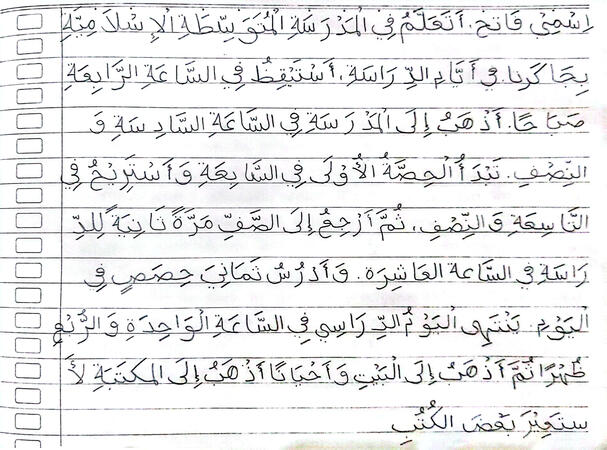 اِسْمِيْ فَاتح. أَتَعَلَّمُ فِي الْمَدْرَسَةِ الْمُتَوَسِّطَةِ الْإِسْلَامِيَّةِ
بِجَاكَرتا. في أَيَّامِ الدِّرَاسَةِ، أَسْتَيْقِظُ فِي السَّاعَةِ الرَّابِعَةِ
صَبَاحًا. أَذْهَبُ إِلَى الْمَدْرَسَةِ فِي السَّاعَةِ السَّادِسَةِ وَ
النِّصْفِ. تَبْدَأُ الْحِصَّةُ الْأُوْلَى فِي السَّابِعَةِ وَأَسْتَرِيْحُ فِي
التَّاسِعَةِ وَالنِّصْفِ، ثُمَّ أَرْجِعُ إِلَى الصَّفِّ مَرَّةً ثَانِيَةً لِلدِّ
رَاسَةِ فِي السَّاعة العَاشِرَة. وَأَدْرُسُ ثَمَانِيَ حِصَصٍ فِي
الْيَوْمِ. يَنْتَهِى الْيَوْمُ الدِّرَاسِي فِي السَّاعَةِ الْوَاحِدَةِ وَالرُّبْعِ
ظُهْرًا ثُمَّ أَذْهَبُ إِلَى الْبَيْتِ وَأَحْيَانًا أَذْهَبُ إِلَى المَكتَبَةِ لأَ
ستَعِيْرَ بَعْضَ الكُتُبِ